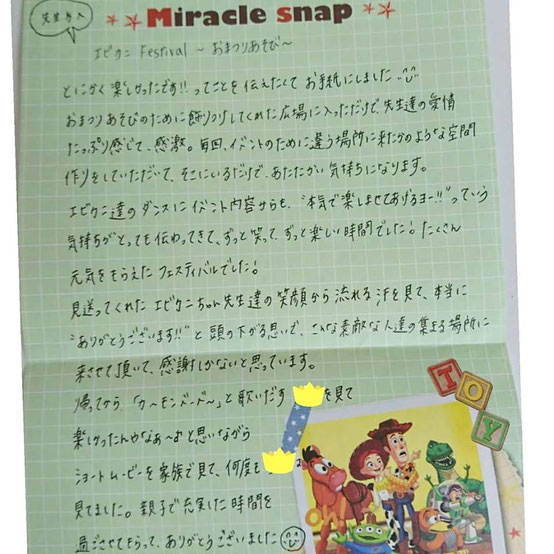 先生方へ
Miracle snap
エビカニ Festival ~ おまつりあそび~
とにかく楽しかったです!! ってことを伝えたくて お手紙にしました
おまつりあそびのために飾りつけしてくれた広場に入っただけで、先生達の愛情
たっぷり感じて、感激。毎回、イベントのために違う場所に来たかのような空間
作りをしていただいて、そこにいるだけで、あたたかい気持ちになります。
エビカニ達のダンスにイベント内容からも、"本気で楽しませてあげるヨー!!"っていう
気持ちがとっても伝わってきて、ずっと笑って、ずっと楽しい時間でした! たくさん
元気をもらえたフェスティバルでした!
見送ってくれた エビカニちゃん先生達の笑顔から流れる汗を見て、本当に
"ありがとうございます!!"と頭の下がる思いで、こんな素敵な人達の集まる場所に
来させて頂いて、感謝しかないと思っています。
帰ってから「カ〜モンド〜ド〜」と歌いだす を見て
楽しかったんやなぁ〜と思いながら
ショートムービーを家族で見て、何度も
見てました。親子で充実した時間を
過ごさせてもらって、ありがとうございました
TOY